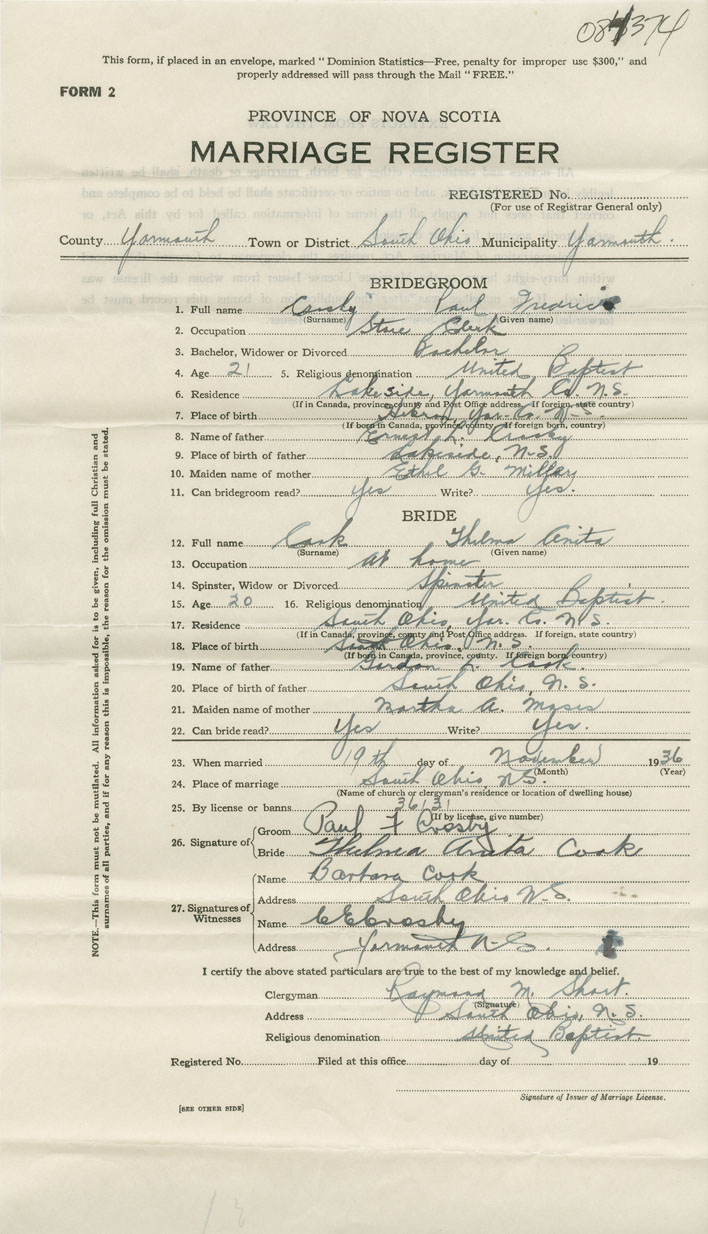 084374
This form, if placed in an envelope, marked "Dominion Statistics—Free, penalty for improper use $300," and
properly addressed will pass through the Mail "FREE."
FORM 2
PROVINCE OF NOVA SCOTIA
MARRIAGE REGISTER
REGISTERED No.
(For use of Registrar General only)
County Yarmouth Town or District South Ohio Municipality Yarmouth.
BRIDEGROOM
1. Full name Crosby Paul Fredrick
(Surname) (Given name)
2. Occupation Store Clerk
3. Bachelor, Widower or Divorced Bachelor
4. Age 21 5. Religious denomination United Baptist
6. Residence Lakeside, Yarmouth Co. N.S.
(If in Canada, province, county and Post Office address. If foreign, state country)
7. Place of birth Hebron, Yar. Co. N.S.
(If born in Canada, province, county. If foreign born, country)
8. Name of father Ernest L. Crosby
9. Place of birth of father Lakeside, N.S.
10. Maiden name of mother Ethel G.
11. Can bridegroom read? Yes Write? Yes.
BRIDE
12. Full name Cook Thelma Anita
(Surname) (Given name)
13. Occupation At home
14. Spinster, Widow or Divorced Spinster
15. Age 20 16. Religious denomination United Baptist.
17. Residence South Ohio, Yar. Co. N.S.
(If in Canada, province, county and Post Office address. If foreign, state country)
18. Place of birth South Ohio, N.S.
(If born in Canada, province, county. If foreign born, country)
19. Name of father Gordon L. Cook.
20. Place of birth of father South Ohio, N.S.
21. Maiden name of mother Bartha A. Moses
22. Can bride read? Yes Write? Yes.
23. When married 19th day of November 1936
(Month) (Year)
24. Place of marriage South Ohio, N.S.
(Name of church or clergyman's residence or location of dwelling house)
25. By license or banns 36131
(If by license, give number)
26. Signature of Groom Paul F Crosby
Bride Thelma Anita Cook
27. Signatures of Witnesses Name Barbara Cook
Address South Ohio N.S.
Name C E Crosby
Address Yarmouth N-S.
I certify the above stated particulars are true to the best of my knowledge and belief.
Clergyman Raymond M. Short.
(Signature)
Address South Ohio, N.S.
Religious denomination United Baptist.
Registered No. Filed at this office day of 19
Signature of Issuer of Marriage License.
[SEE OTHER SIDE]
NOTE.—This form must not be mutilated. All information asked for is to be given, including full Christian and
surnames of all parties, and if for any reason this is impossible, the reason for the omission must be stated.
13